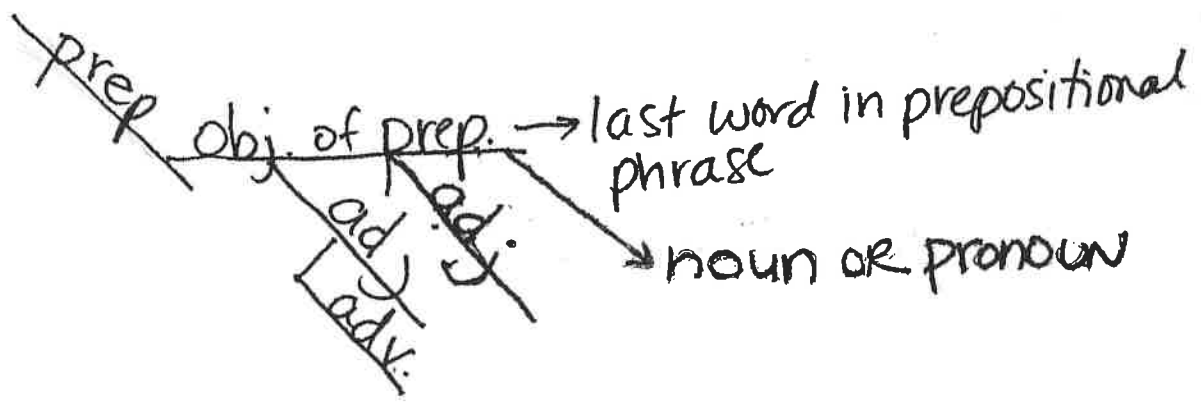 prep
obj. of prep. → last word in prepositional
phrase
adj
adj.
noun OR pronoun
adv.